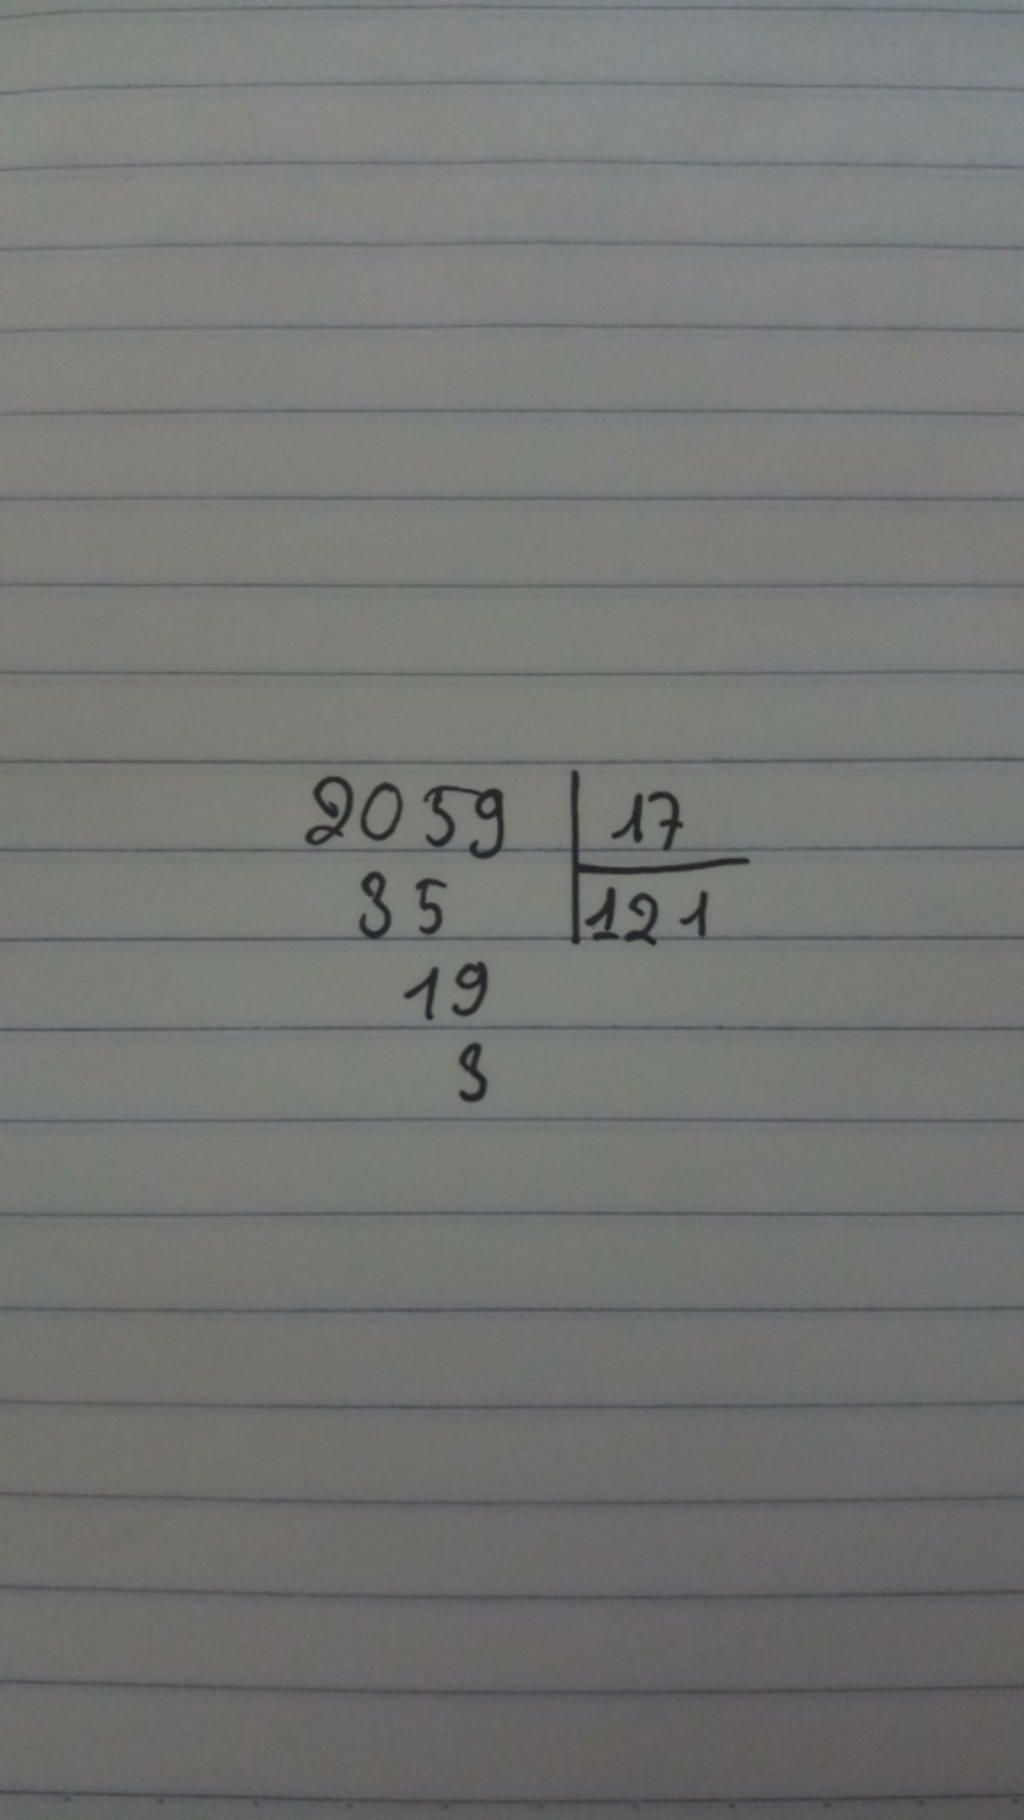 2059 17
35 121
19
3